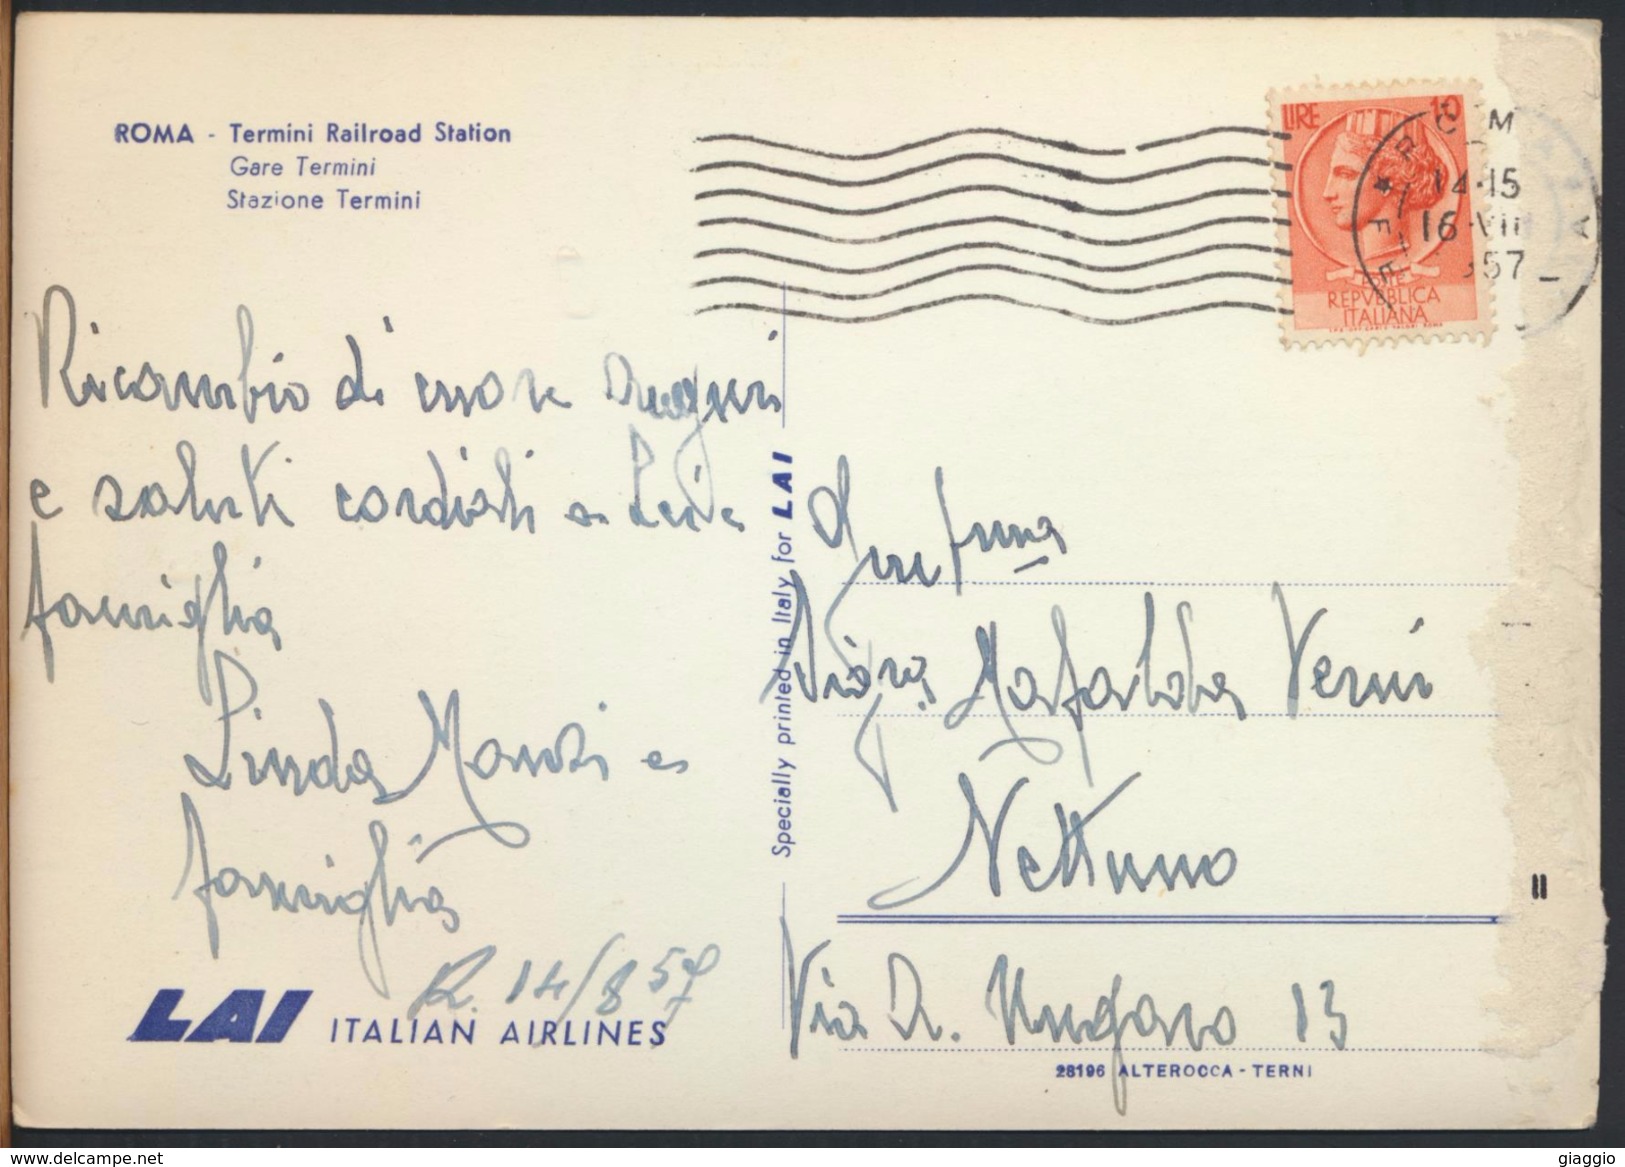 ROMA - Termini Railroad Station
Gare Termini
Stazione Termini
LIRE 10
POSTE
REPVBBLICA
ITALIANA
ROMA
14-15
16-VIII
57
FERR
Ricambio di cuore auguri
e saluti cordiali a Lei e
famiglia
Linda Manzi e
famiglia
R. 14/8 57
LAI ITALIAN AIRLINES
Specially printed in Italy for LAI
Gent.ma
Sig.ra Mafalda Verni
Nettuno
Via A. Ungaro 13
28196 ALTEROCCA - TERNI
www.delcampe.net
giaggio